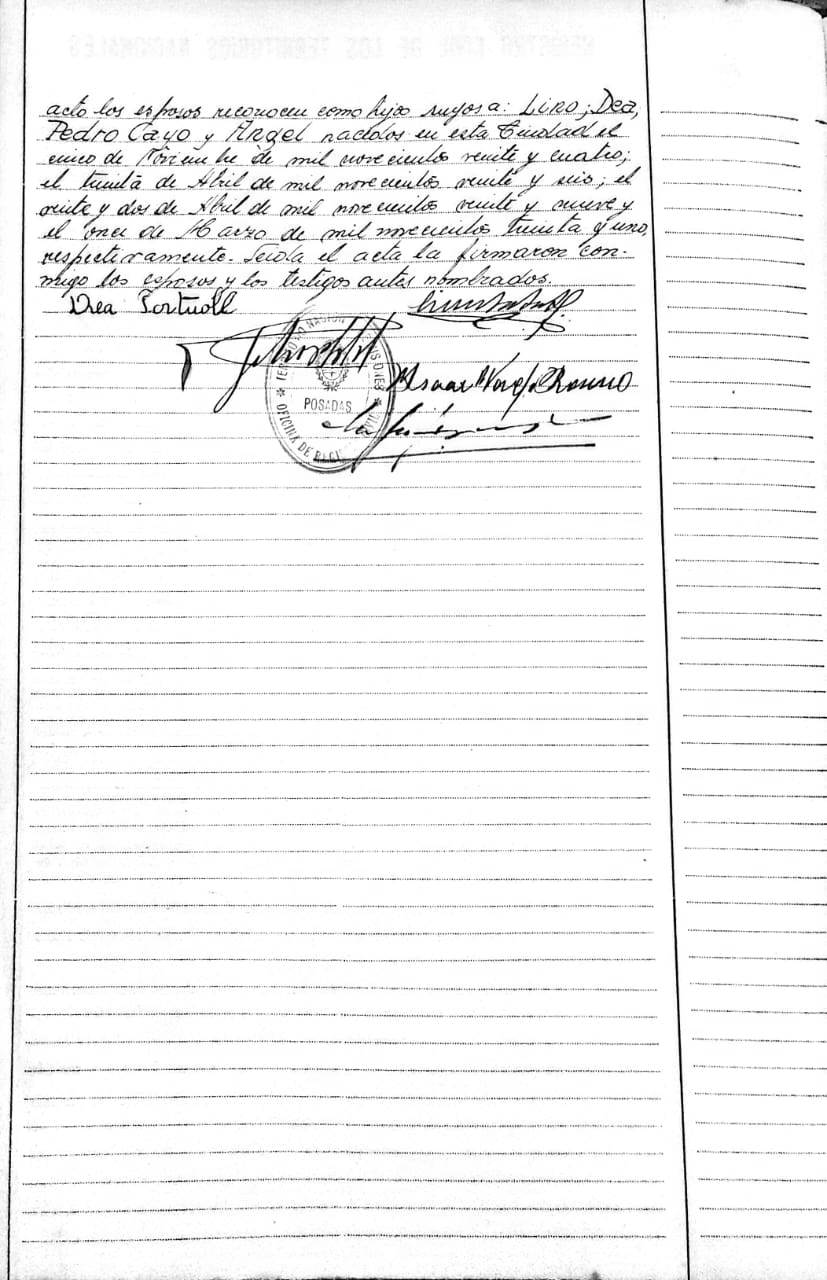 acto los esposos reconocen como hijos suyos a: Lino; Dea,
Pedro Cayo y Angel nacidos en esta Ciudad el
cinco de Noviembre de mil novecientos veinte y cuatro;
el treinta de Abril de mil novecientos veinte y seis; el
veinte y dos de Abril de mil novecientos veinte y nueve y
el once de Marzo de mil novecientos treinta y uno,
respectivamente. Leida el acta la firmaron con-
migo los esposos y los testigos antes nombrados.
Dea
POSADAS
OFICINA DE